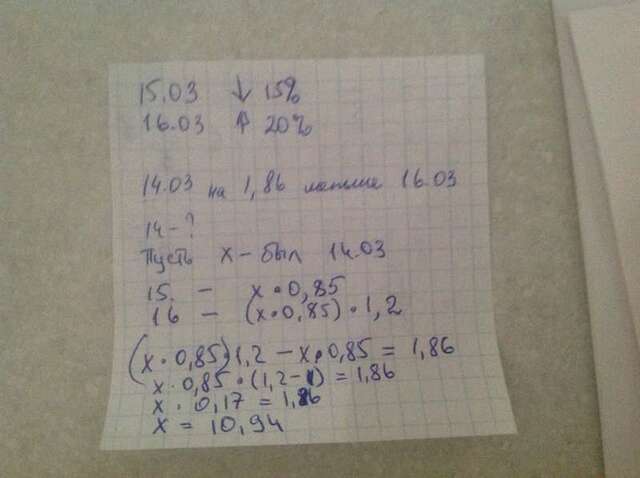 15.03 ↓ 15%
16.03 ↑ 20%
14.03 на 1,86 меньше 16.03
14-?
Пусть x - был 14.03
15. - x • 0,85
16 - (x • 0,85) • 1,2
(x • 0,85) • 1,2 - x • 0,85 = 1,86
x • 0,85 • (1,2-1) = 1,86
x • 0,17 = 1,86
x = 10,94